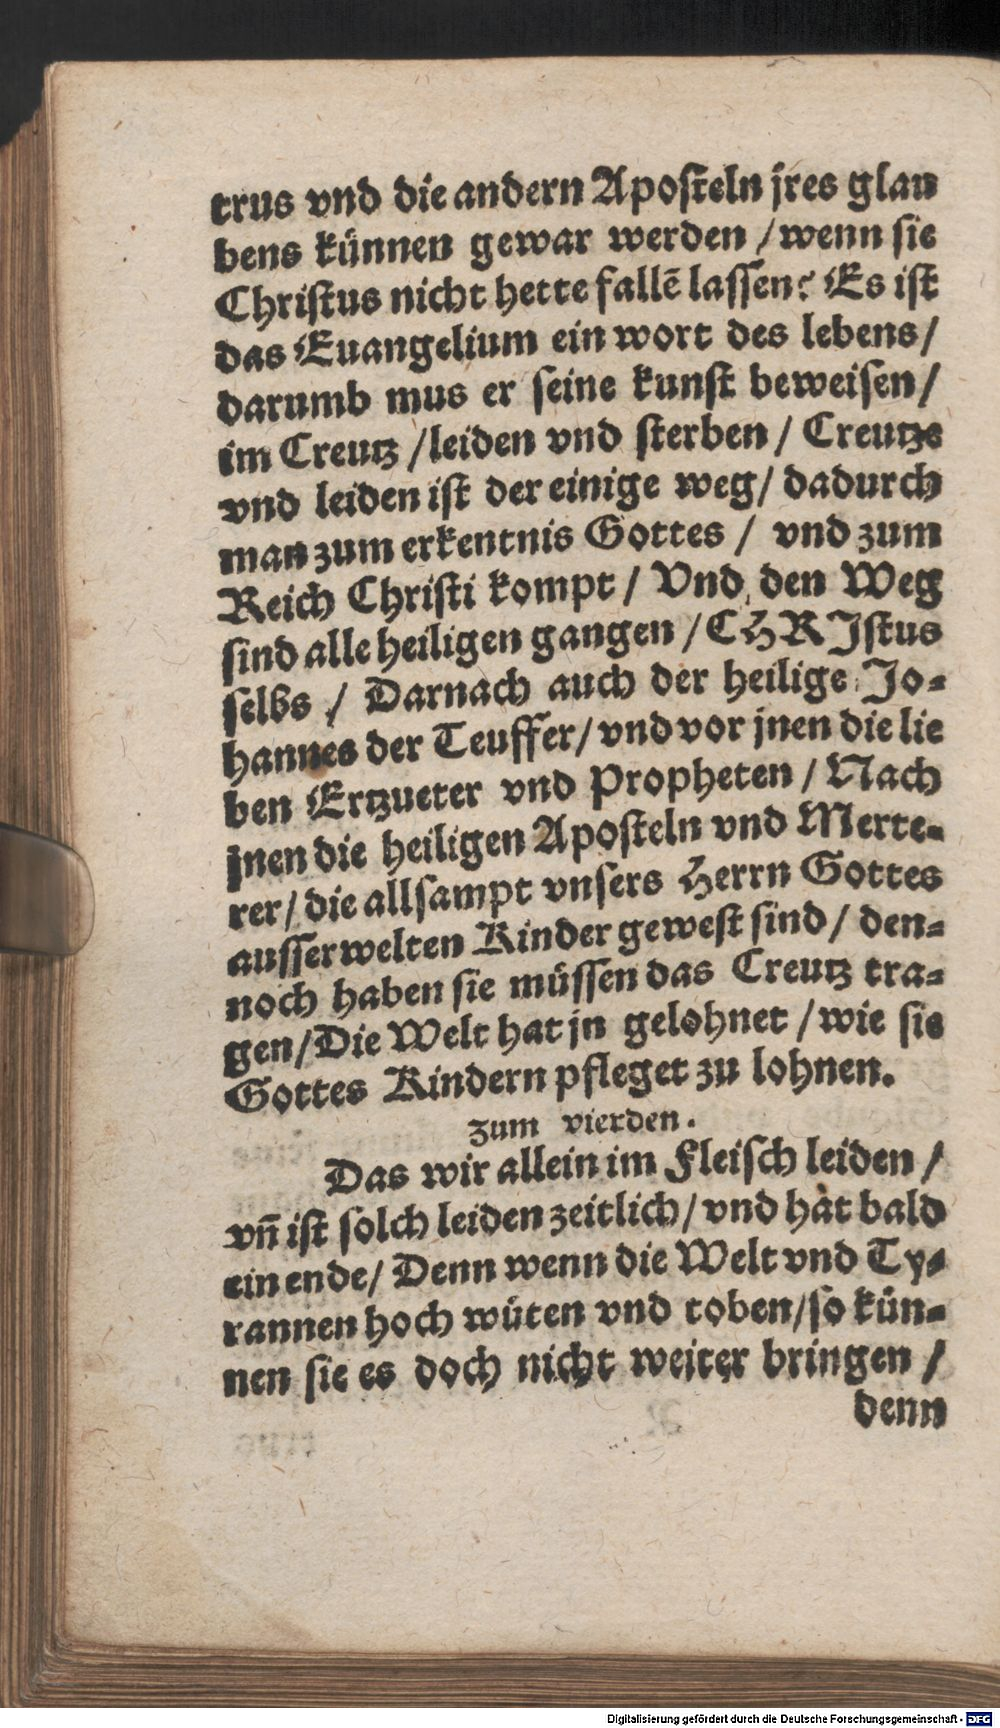 trus vnd die andern Aposteln jres glau
bens künnen gewar werden / wenn sie
Christus nicht hette fallē lassen? Es ist
das Euangelium ein wort des lebens /
darumb mus er seine kunst beweisen /
im Creutz / leiden vnd sterben / Creutze
vnd leiden ist der einige weg / dadurch
man zum erkentnis Gottes / vnd zum
Reich Christi kompt / Vnd den Weg
sind alle heiligen gangen / CHRJstus
selbs / Darnach auch der heilige Jo-
hannes der Teuffer / vnd vor jnen die lie
ben Ertzueter vnd Propheten / Nach
jnen die heiligen Aposteln vnd Merte-
rer / die allsampt vnsers Herrn Gottes
ausserwelten Kinder gewest sind / den-
noch haben sie müssen das Creutz tra-
gen / Die Welt hat jn gelohnet / wie sie
Gottes Kindern pfleget zu lohnen.
zum vierden.
Das wir allein im Fleisch leiden /
vn̄ ist solch leiden zeitlich / vnd hat bald
ein ende / Denn wenn die Welt vnd Ty-
rannen hoch wüten vnd toben / so kün-
nen sie es doch nicht weiter bringen /
denn
Digitalisierung gefördert durch die Deutsche Forschungsgemeinschaft - DFG